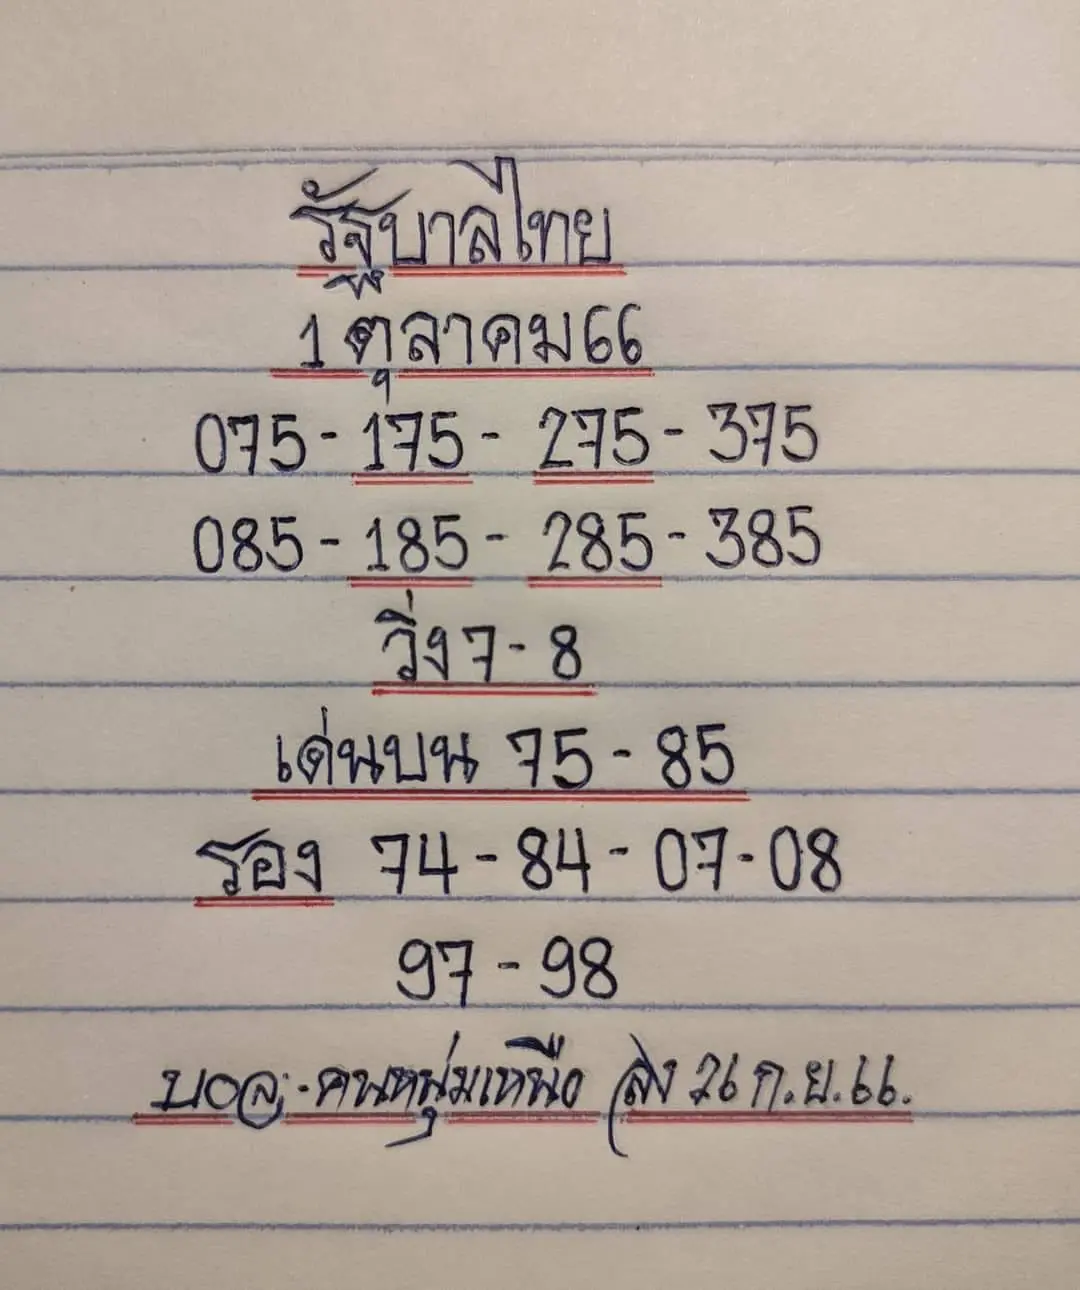 รัฐบาลไทย
1 ตุลาคม 66
075 - 175 - 275 - 375
085 - 185 - 285 - 385
วิ่ง 7 - 8
เด่นบน 75 - 85
รอง 74 - 84 - 07 - 08
97 - 98
คนหนุ่มเหนือ ส่ง 26 ก.ย. 66.